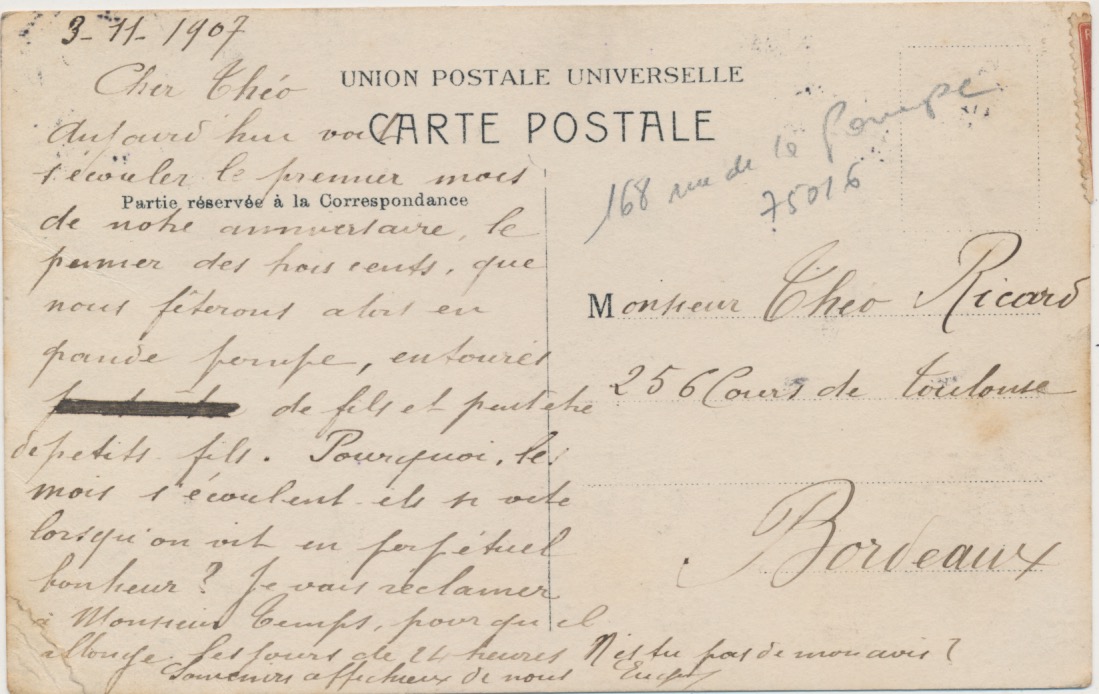 3-11-1907
Cher Théo
Aujourd'hui voit
s'écouler le premier mois
de notre anniversaire, le
premier des trois cents, que
nous fêterons alors en
grande pompe, entourés
de fils et peut être
de petits fils. Pourquoi, les
mois s'écoulent ils si vite
lorsqu'on vit en perpétuel
bonheur? Je vais réclamer
à Monsieur Temps, pour qu'il
allonge les jours de 24 heures N'es tu pas de mon avis?
Souvenirs affectueux de nous
UNION POSTALE UNIVERSELLE
CARTE POSTALE
Partie réservée à la Correspondance
168 rue de la Pompe
75016
Monsieur Théo Ricard
256 Cours de Toulouse
Bordeaux